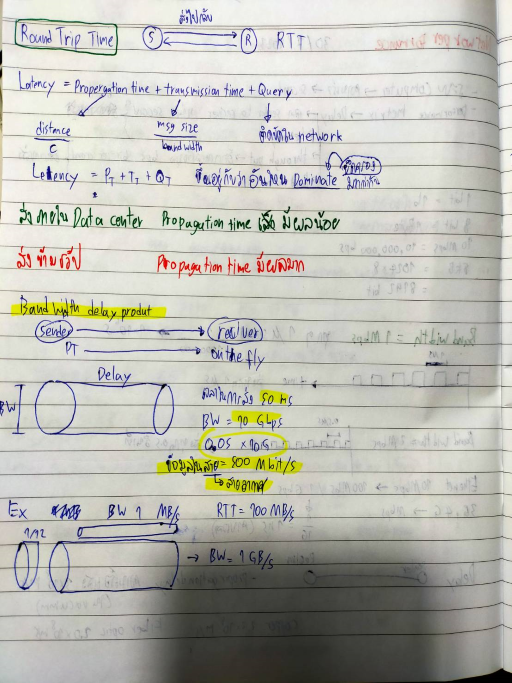 ส่งไปกลับ
Round Trip Time S R RTT
Latency = Propergation time + transmission time + Query
distance msg size ติดขัดใน network
C bandwidth
Latency = PT + TT + QT ขึ้นอยู่กับว่าอันไหน Dominate
มากกว่ากัน
ส่งภายใน Data center Propagation time เสี้ยว มีผลน้อย
ส่งข้ามทวีป Propagation time มีผลมาก
Bandwidth delay produt
Sender reciver
PT on the fly
Delay
BW
เวลาในการส่ง 50 ms
BW = 10 Gbps
0.05 × 10G
ข้อมูลในสาย = 500 Mbit/s
สายอากาศ
Ex BW 1 MB/s RTT = 100 MB/s
→ BW = 1 GB/s